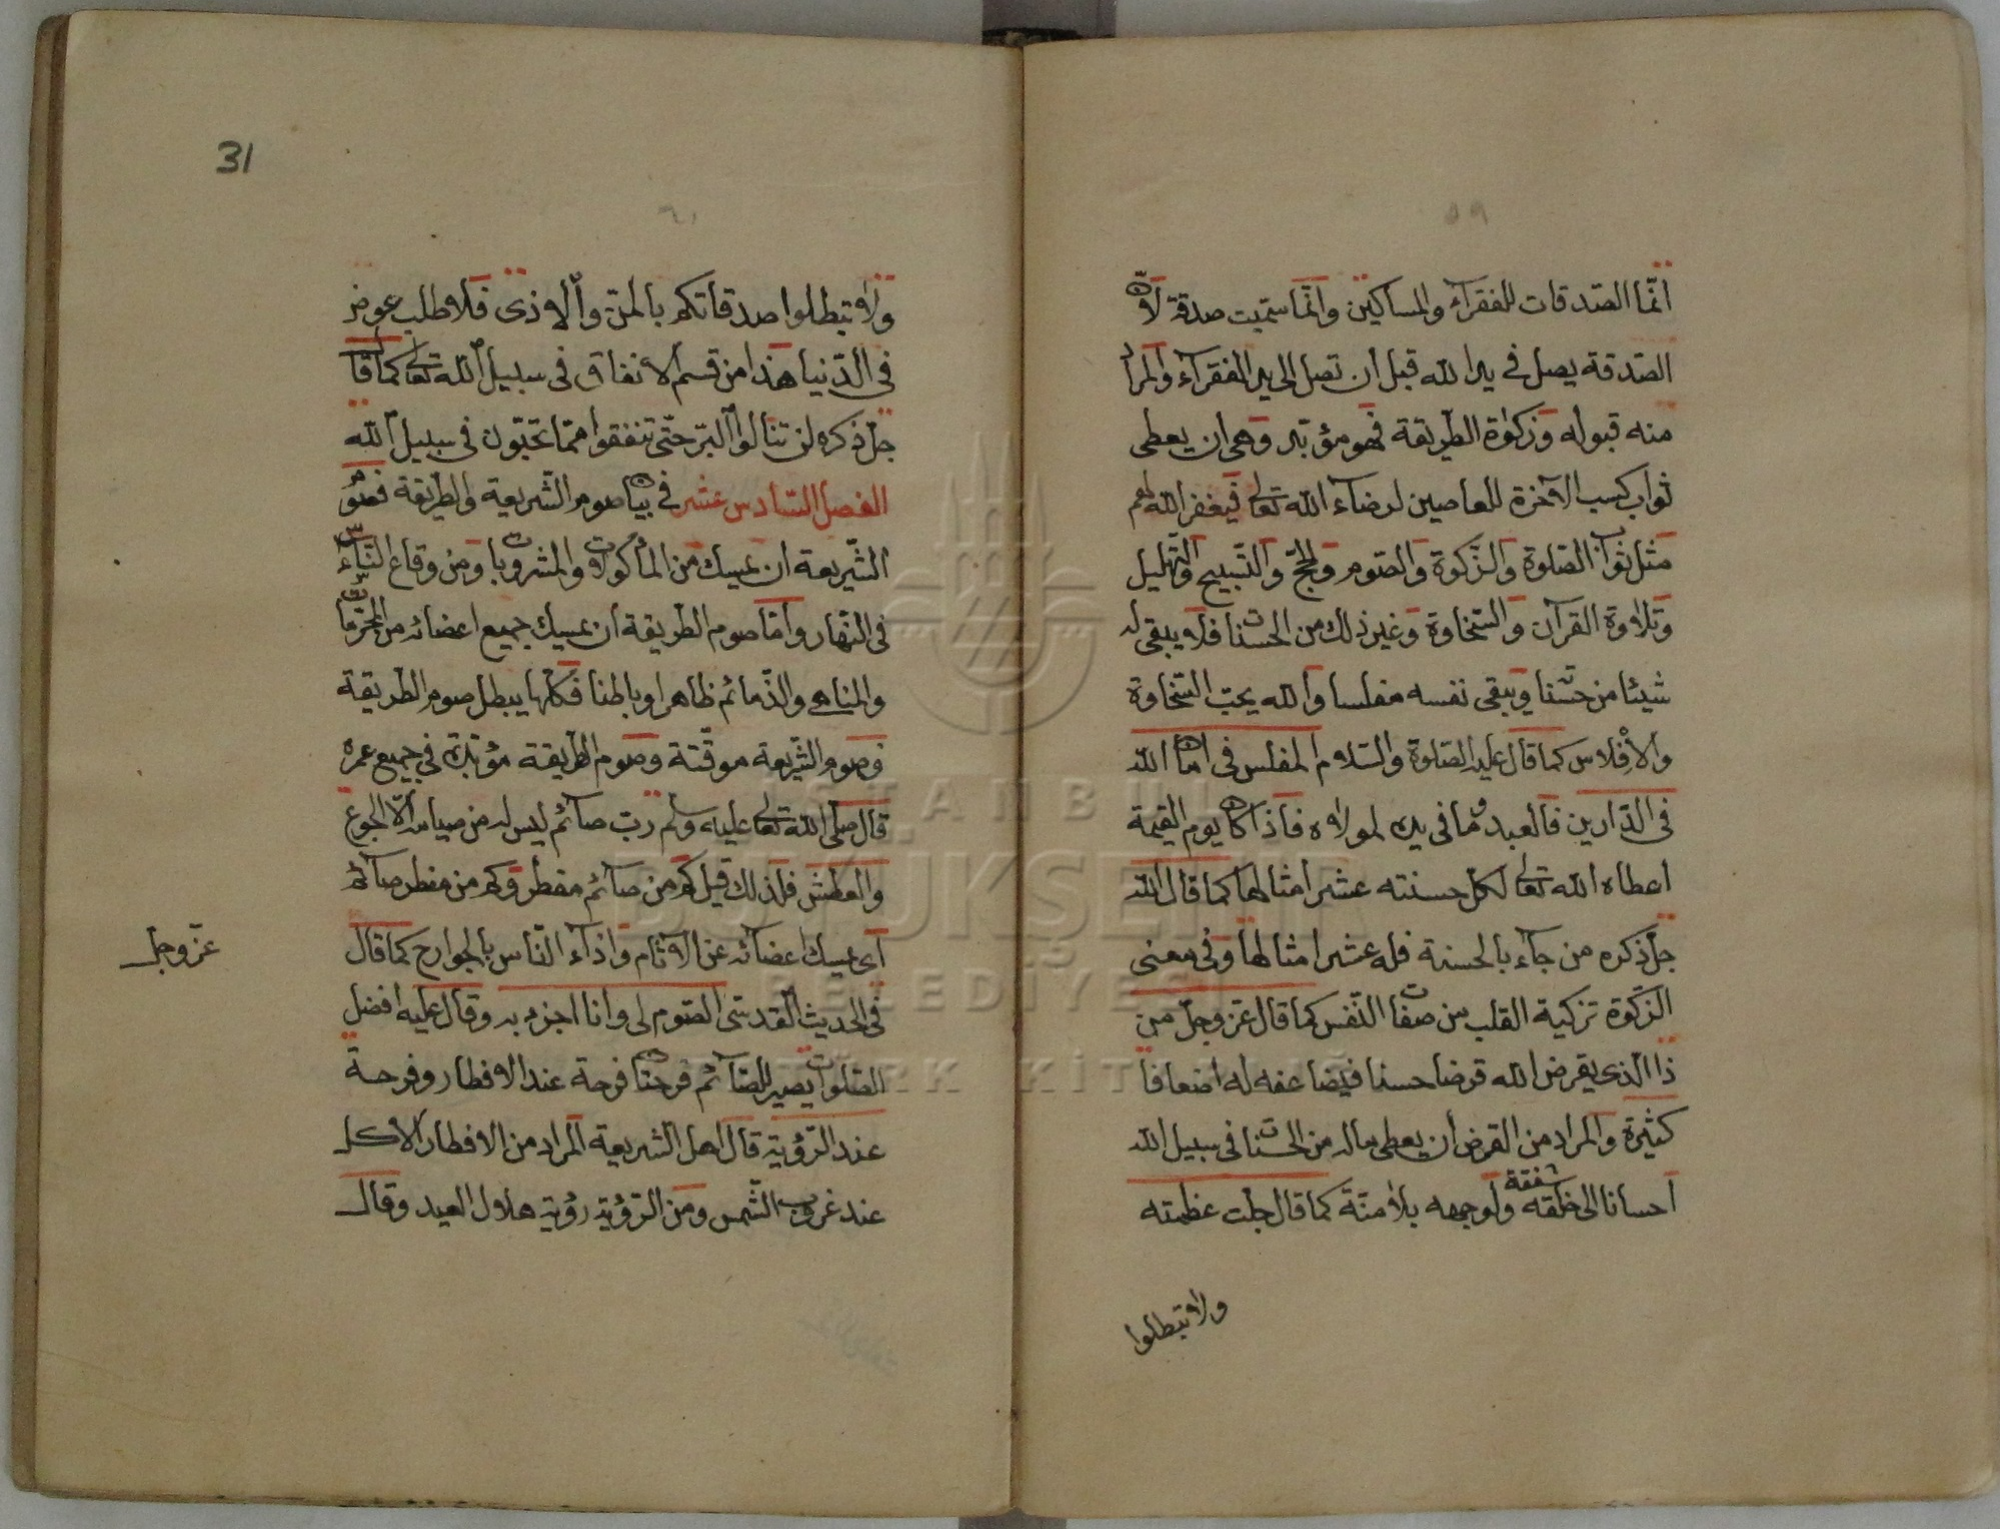 ٥٩
انّما الصّدقات للفقرآء والمساكين وانّما سمّيت صدقة لانّ
الصّدقة يصل في يد الله قبل أن تصل الى يد الفقرآء والمراد
منه قبوله وزكوة الطّريقة فهو مؤبّد وهي ان يعطى
ثواب كسب الآخرة للعاصين لرضاء الله تعالى فيغفر الله لهم
مثل ثواب الصّلوة والزّكوة والصّوم والحجّ والتّسبيح والتّهليل
وتلاوة القرآن والسّخاوة وغير ذلك من الحسنات فلا يبقى له
شيئا من حسّنا ويبقى نفسه مفلسا والله يحبّ السّخاوة
والأفلاس كما قال عليه الصّلوة والسّلام المفلس في امان الله
في الدّارين فالعبد وما في يده لمولاه فاذا كان يوم القيمة
اعطاه الله تعالى لكلّ حسنته عشر امثالها كما قال الله
جلّ ذكره من جآء بالحسنة فله عشر امثالها وفي معنى
الزّكوة تزكية القلب من صفات النّفس كما قال عزّ وجلّ من
ذا الّذى يقرض الله قرضا حسنا فيضاعفه له اضعافا
كثيرة والمراد من القرض أن يعطى ماله من الحسنات في سبيل الله
احسانا الى خلقه شفقة ولوجهه بلا منّة كما قال جلّت عظمته
ولا تبطلوا
31
٦٠
ولا تبطلوا صدقاتكم بالمنّ والاذى فلا طلب عوض
في الدّنيا هذا من قسم الأنفاق في سبيل الله تعالى كما قال
جلّ ذكره لن تنالوا البرّ حتّى تنفقوا ممّا تحبّون في سبيل الله
الفصل السّادس عشر في بيان صوم الشّريعة والطّريقة فصوم
الشّريعة ان يمسك من المأكولات والمشروبات ومن وقاع النّساء
في النّهار وامّا صوم الطّريقة ان يمسك جميع اعضائه من المحرّمات
والمناهى والذّمائم ظاهرا وباطنا فكلّها يبطل صوم الطّريقة
فصوم الشّريعة موقّتة وصوم الطّريقة مؤبّدة في جميع عمره
قال صلّى الله تعالى عليه وسلّم ربّ صآئم ليس له من صيامه الّا الجوع
والعطش فلذلك قيل كم من صآئم مفطر وكم من مفطر صآئم
أى يمسك اعضائه عن الآثام واذآء النّاس بالجوارح كما قال
عزّ وجلّ
في الحديث القدسى الصّوم لى وانا اجزى به وقال عليه افضل
الصّلوات يصير للصّآئم فرحتان فرحة عند الافطار وفرحة
عند الرّؤية قال اهل الشّريعة المراد من الافطار الاكل
عند غروب الشّمس ومن الرّؤية رؤية هلال العيد وقال
İSTANBUL
BÜYÜKŞEHİR
BELEDİYESİ